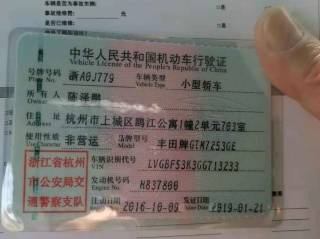 中华人民共和国机动车行驶证
Vehicle License of the People's Republic of China
号牌号码 浙A0J779 车辆类型 小型轿车
Plate No. Vehicle Type
所有人 陈泽鹏
Owner
住址 杭州市上城区鸥江公寓1幢2单元703室
Address
使用性质 非营运 品牌型号 丰田牌GTM7253GE
Use Character Model
浙江省杭州市公安局交通警察支队
车辆识别代号 LVGBF53K3GG713233
VIN
发动机号码 H837800
Engine No.
注册日期 2016-10-09 发证日期 2019-01-21